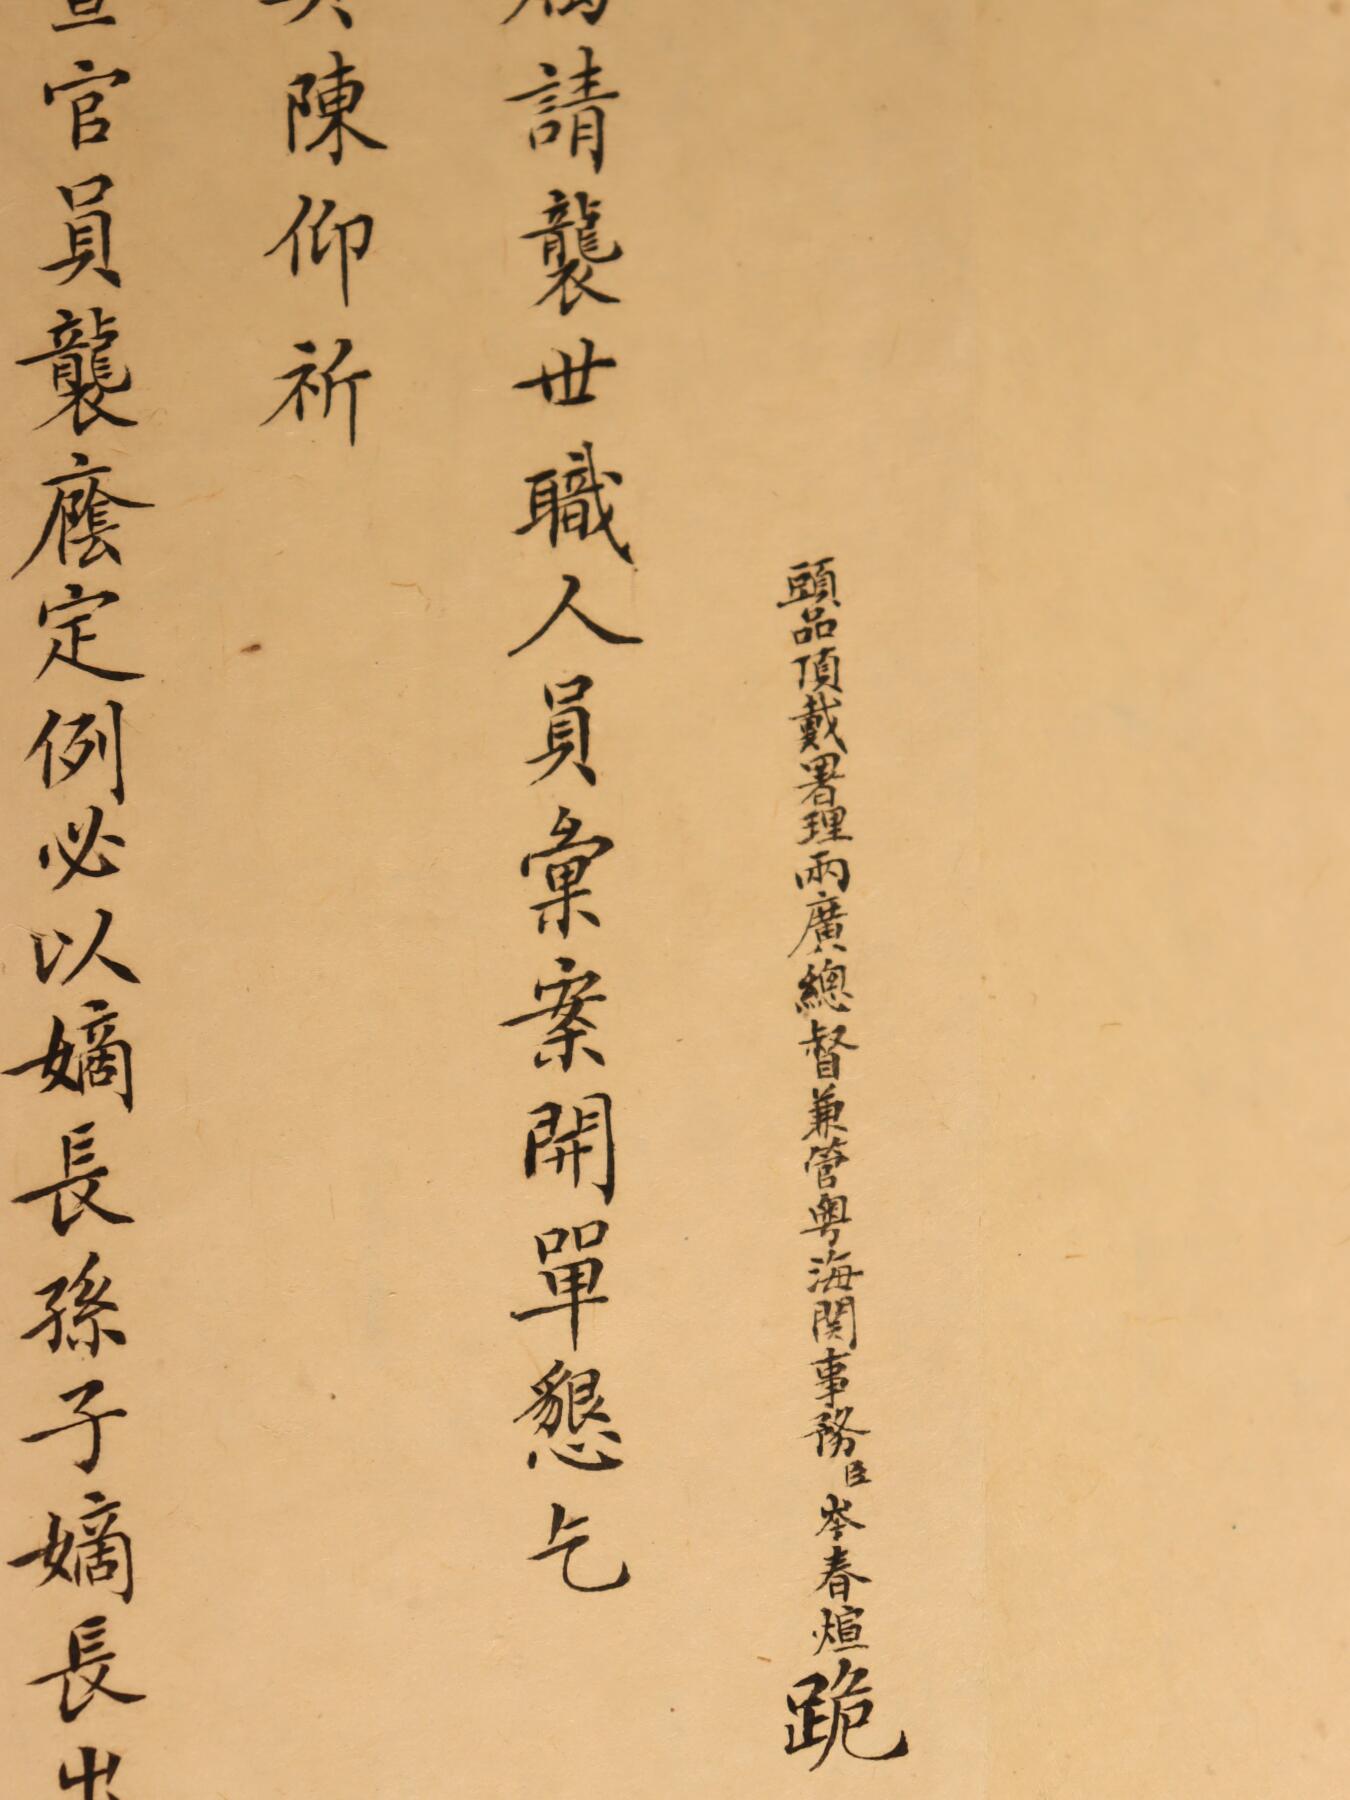 頭品頂戴署理兩廣總督兼管粵海関事務臣岑春煊跪
請襲世職人員彙案開單懇乞
陳仰祈
官員襲廕定例必以嫡長孫子嫡長出